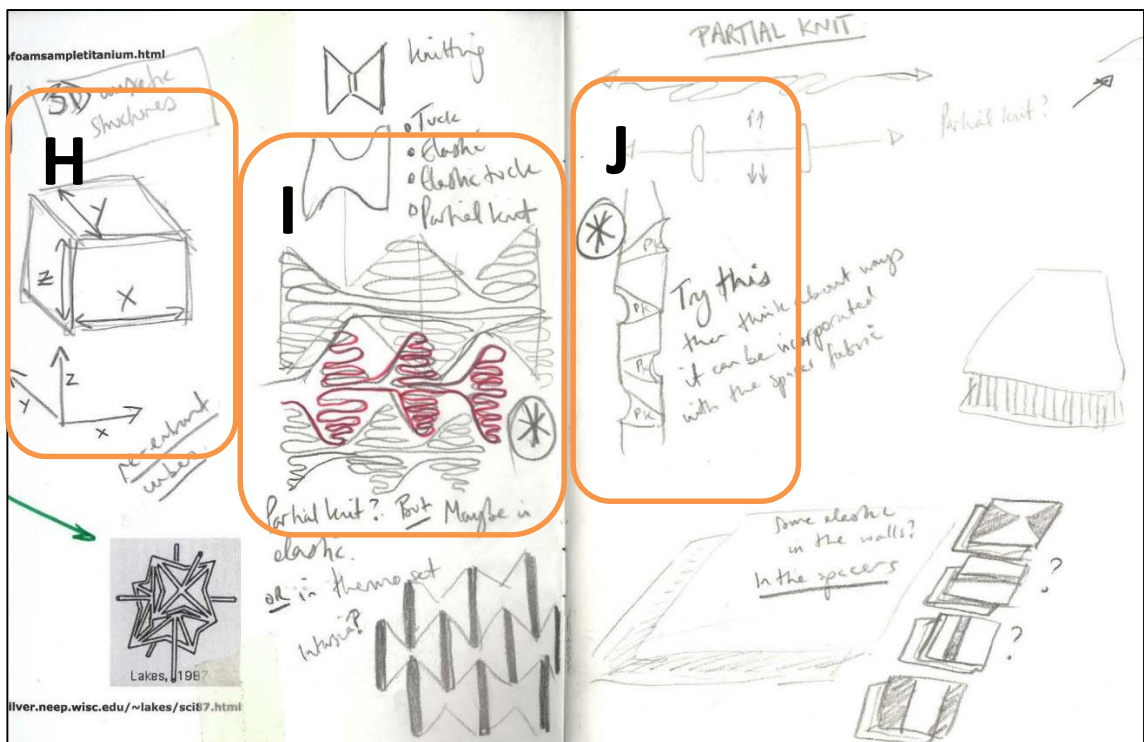 ofoamsampletitanium.html
3D auxetic
structures
H
Y
Z
X
Z
Y
X
re-entrant
cubes
Lakes, 1987
silver.neep.wisc.edu/~lakes/sci87.html
knitting
• Tuck
• Elastic
• Elastic tuck
• Partial knit
I
*
Partial knit? But Maybe in
elastic.
OR in thermoset
Intarsia?
PARTIAL KNIT
Partial knit?
J
*
PK
PK
PK
PK
Try this
then think about ways
it can be incorporated
with the spacer fabric
Some elastic
in the walls?
In the spacers
?
?
?